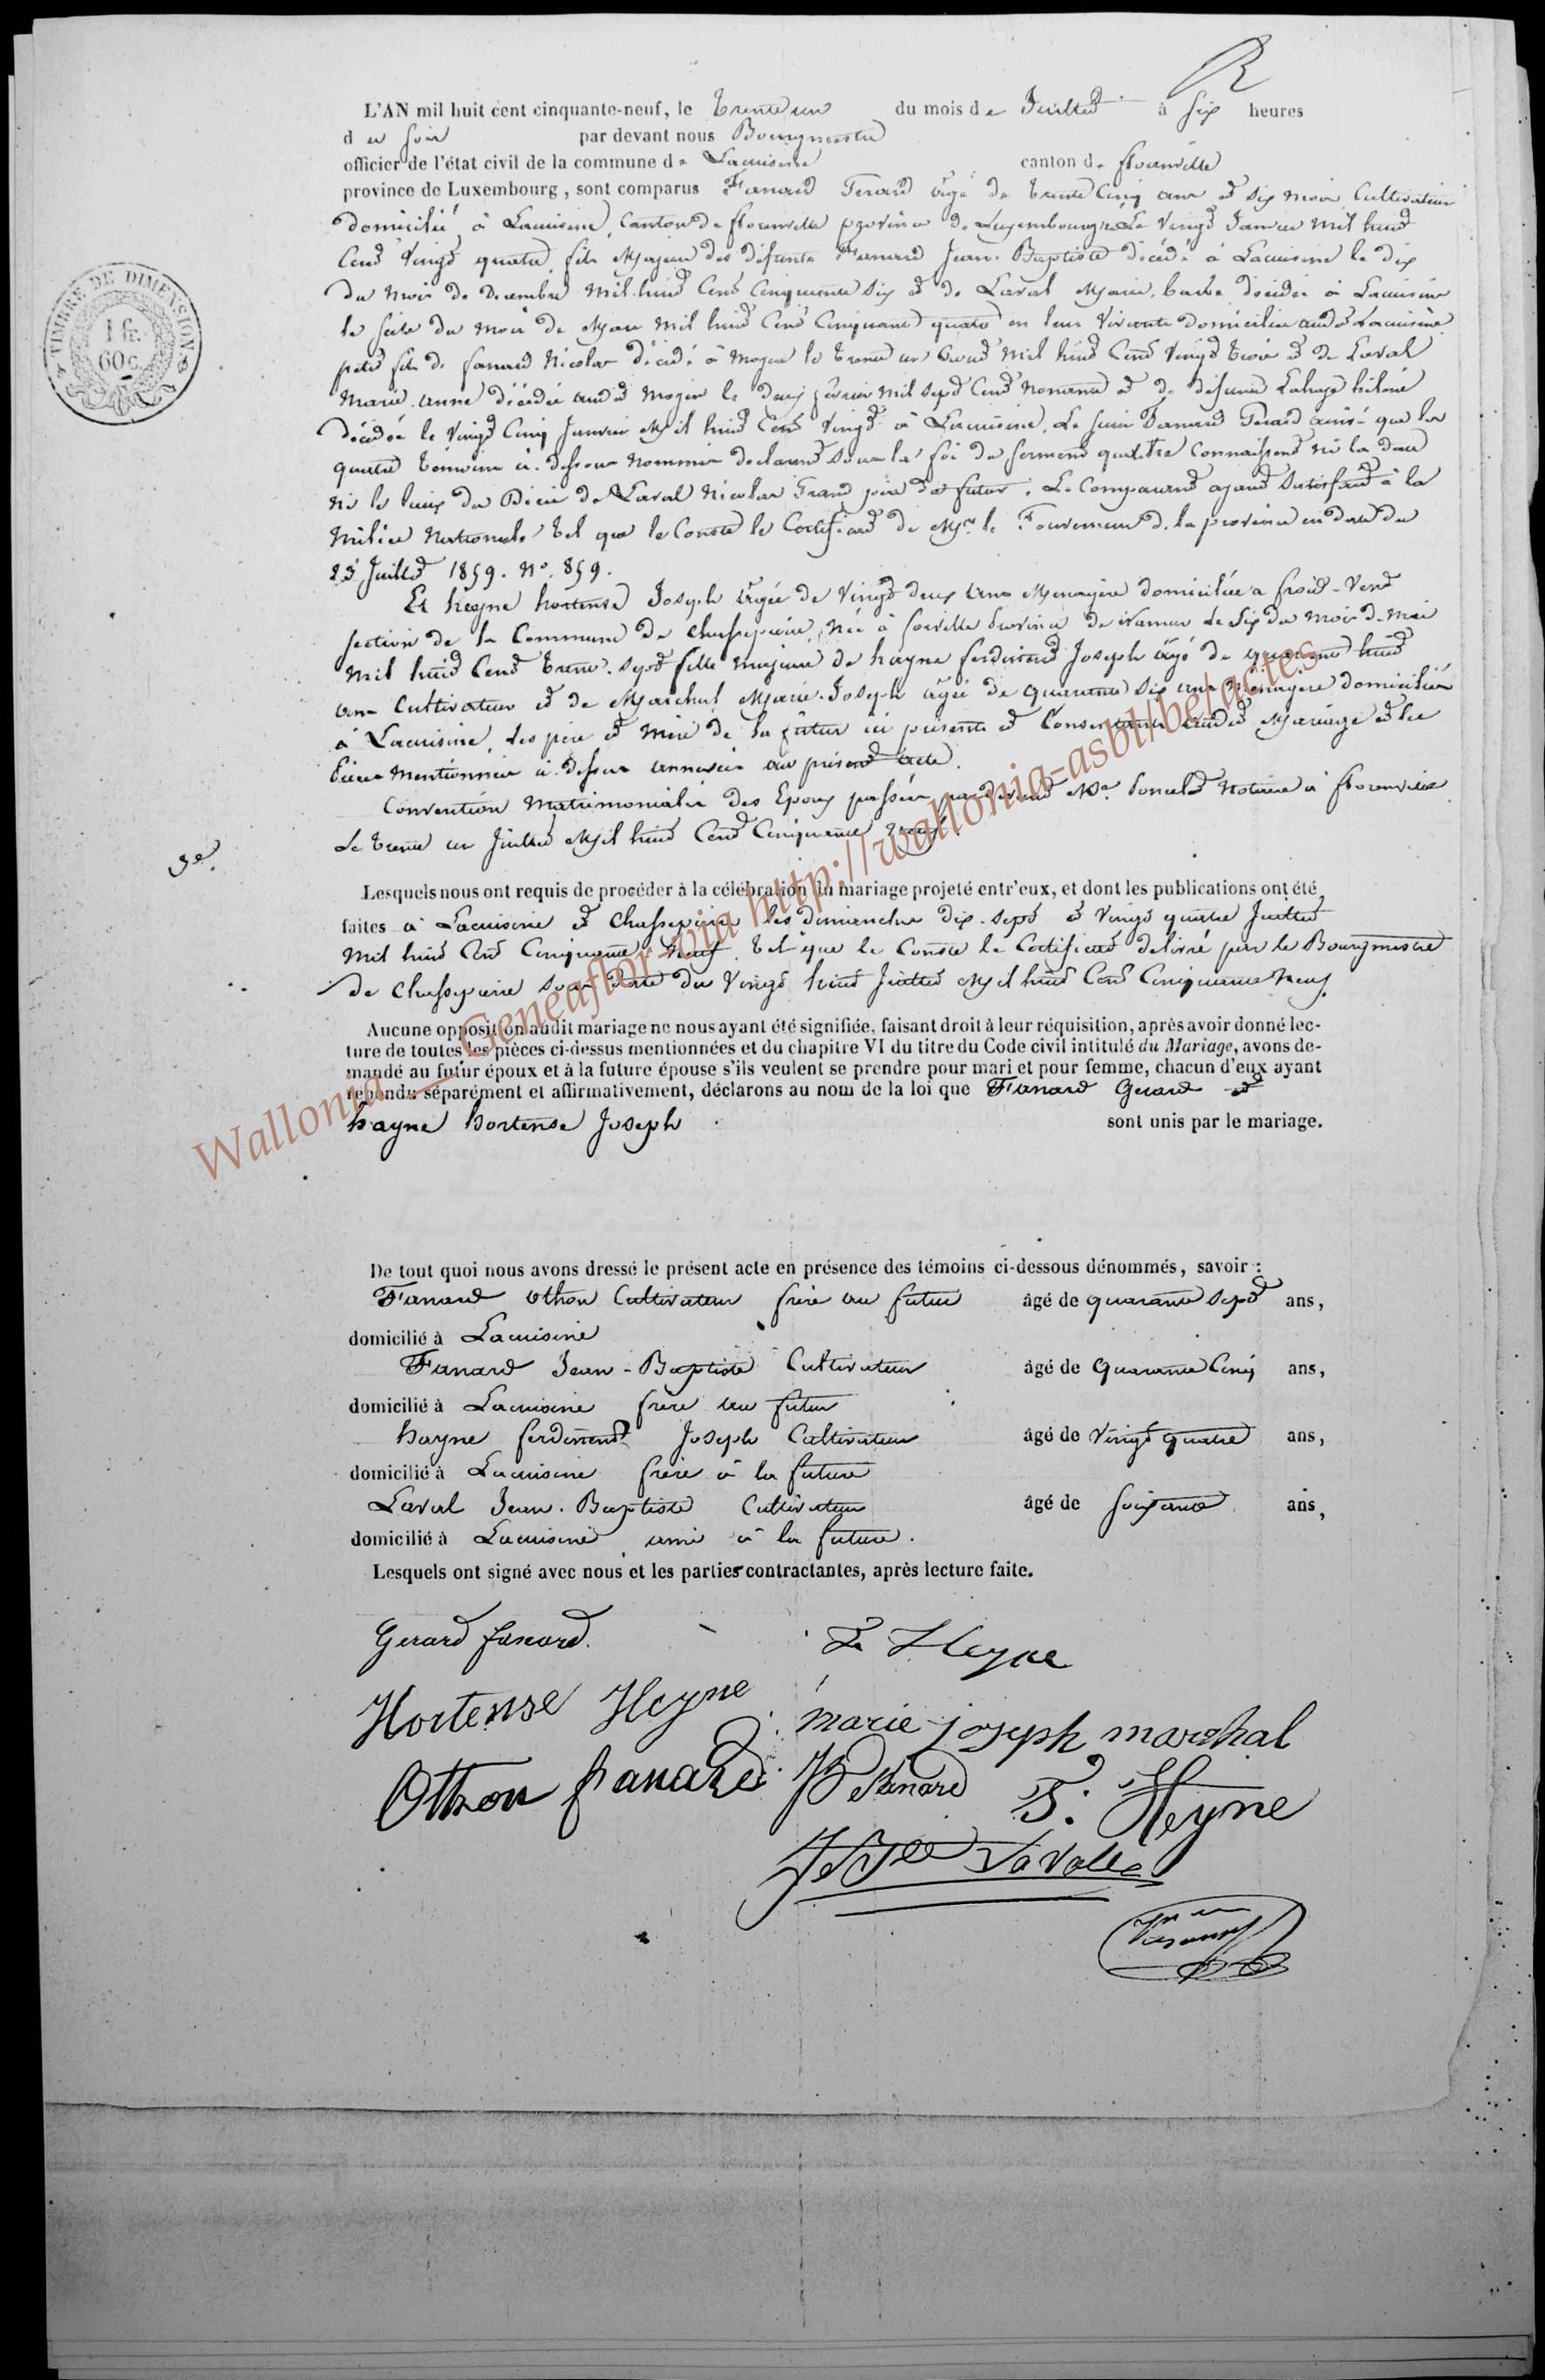 L'AN mil huit cent cinquante-neuf, le Trente un du mois de Juillet à Six heures
du soir par devant nous Bourgmestre
officier de l'état civil de la commune de Lacuisine canton de florenville
province de Luxembourg, sont comparus Fanard Gerard âgé de trente Cinq ans et six mois Cultivateur
domicilié à Lacuisine, Canton de florenville province de Luxembourg né Le Vingt Janvier Mil huit
Cent Vingt quatre, fils Majeur des défunts Fanard Jean-Baptiste décédé à Lacuisine le dix
du mois de Decembre Mil huit Cent Cinquante Six et de Laval Marie barbe décédée à Lacuisine
le du mois de Mars Mil huit Cent Cinquante quatre en leur Vivants domiciliés audit Lacuisine
petit fils de fanard Nicolas décédé à Moyen le Trente un Mil huit Cent Vingt trois et de Laval
Marie anne décédée audit Moyen le deux février Mil Sept Cent Nonante et de défunte Lahaye hélène
décédée le Vingt Cinq Janvier Mil huit Cent Vingt à Lacuisine. Le Fanard Gerard ainsi que les
quatre témoins ci-dessous Nommés déclarent sous la foi du Serment Connaissent ni la date
ni le lieux du Décès de Laval Nicolas Grand père du futur. Le Comparant ayant Satisfait à la
Milice Nationale tel que le Conste le Certificat de Mr. le Gouverneur de la province en date du
25 Juillet 1859. No. 859.
Et heyne hortense Joseph âgée de Vingt deux ans Menagère domiciliée à froid-Vent
section de la Commune de Chassepierre, Née à Province de Namur le Six du mois de Mai
Mil huit Cent Trente-Sept fille Majeure de hayne ferdinand Joseph âgé de quarante huit
ans Cultivateur et de Marchal Marie-Joseph âgée de quarante Six ans Ménagère domiciliés
à Lacuisine, les père et Mère de la future ici présents et Consentants audit Mariage et les
Pièces Mentionnées ci-dessus annexées au présent acte.
Convention Matrimoniales des Epoux passée pardevant Me. Poncelet Notaire à florenville
Le trente un Juillet Mil huit Cent Cinquante Neuf.
Lesquels nous ont requis de procéder à la célébration du mariage projeté entr'eux, et dont les publications ont été
faites à Lacuisine et Chassepierre les dimanches dix-Sept et Vingt quatre Juillet
Mil huit Cent Cinquante Neuf, tel que le Conste le Certificat délivré par le Bourgmestre
de Chassepierre Sous date du Vingt huit Juillet Mil huit Cent Cinquante Neuf.
Aucune opposition audit mariage ne nous ayant été signifiée, faisant droit à leur réquisition, après avoir donné lec-
ture de toutes les pièces ci-dessus mentionnées et du chapitre VI du titre du Code civil intitulé du Mariage, avons de-
mandé au futur époux et à la future épouse s'ils veulent se prendre pour mari et pour femme, chacun d'eux ayant
répondu séparément et affirmativement, déclarons au nom de la loi que Fanard Gerard et
hayne hortense Joseph sont unis par le mariage.
De tout quoi nous avons dressé le présent acte en présence des témoins ci-dessous dénommés, savoir :
Fanard Othon Cultivateur frère au futur âgé de quarante Sept ans,
domicilié à Lacuisine
Fanard Jean-Baptiste Cultivateur âgé de Quarante Cinq ans,
domicilié à Lacuisine frère au futur
hayne ferdinand Joseph Cultivateur âgé de Vingt quatre ans,
domicilié à Lacuisine frère à la future
Laval Jean-Baptiste Cultivateur âgé de soixante ans,
domicilié à Lacuisine ami à la future.
Lesquels ont signé avec nous et les parties contractantes, après lecture faite.
Gerard fanard.
Heyne
Hortense Heyne
marie joseph marchal
Othon fanard
JB fanard
F. Heyne
TIMBRE DE DIMENSION
1 fr.
60 c.
Wallonia - Geneaflor via http://wallonia-asbl/be/actes